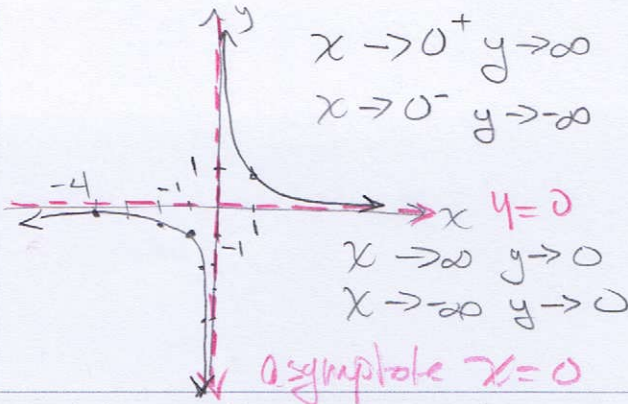 y
x → 0⁺ y → ∞
x → 0⁻ y → -∞
-4
-1
1
1
-1
x
y = 0
x → ∞ y → 0
x → -∞ y → 0
asymptote x = 0